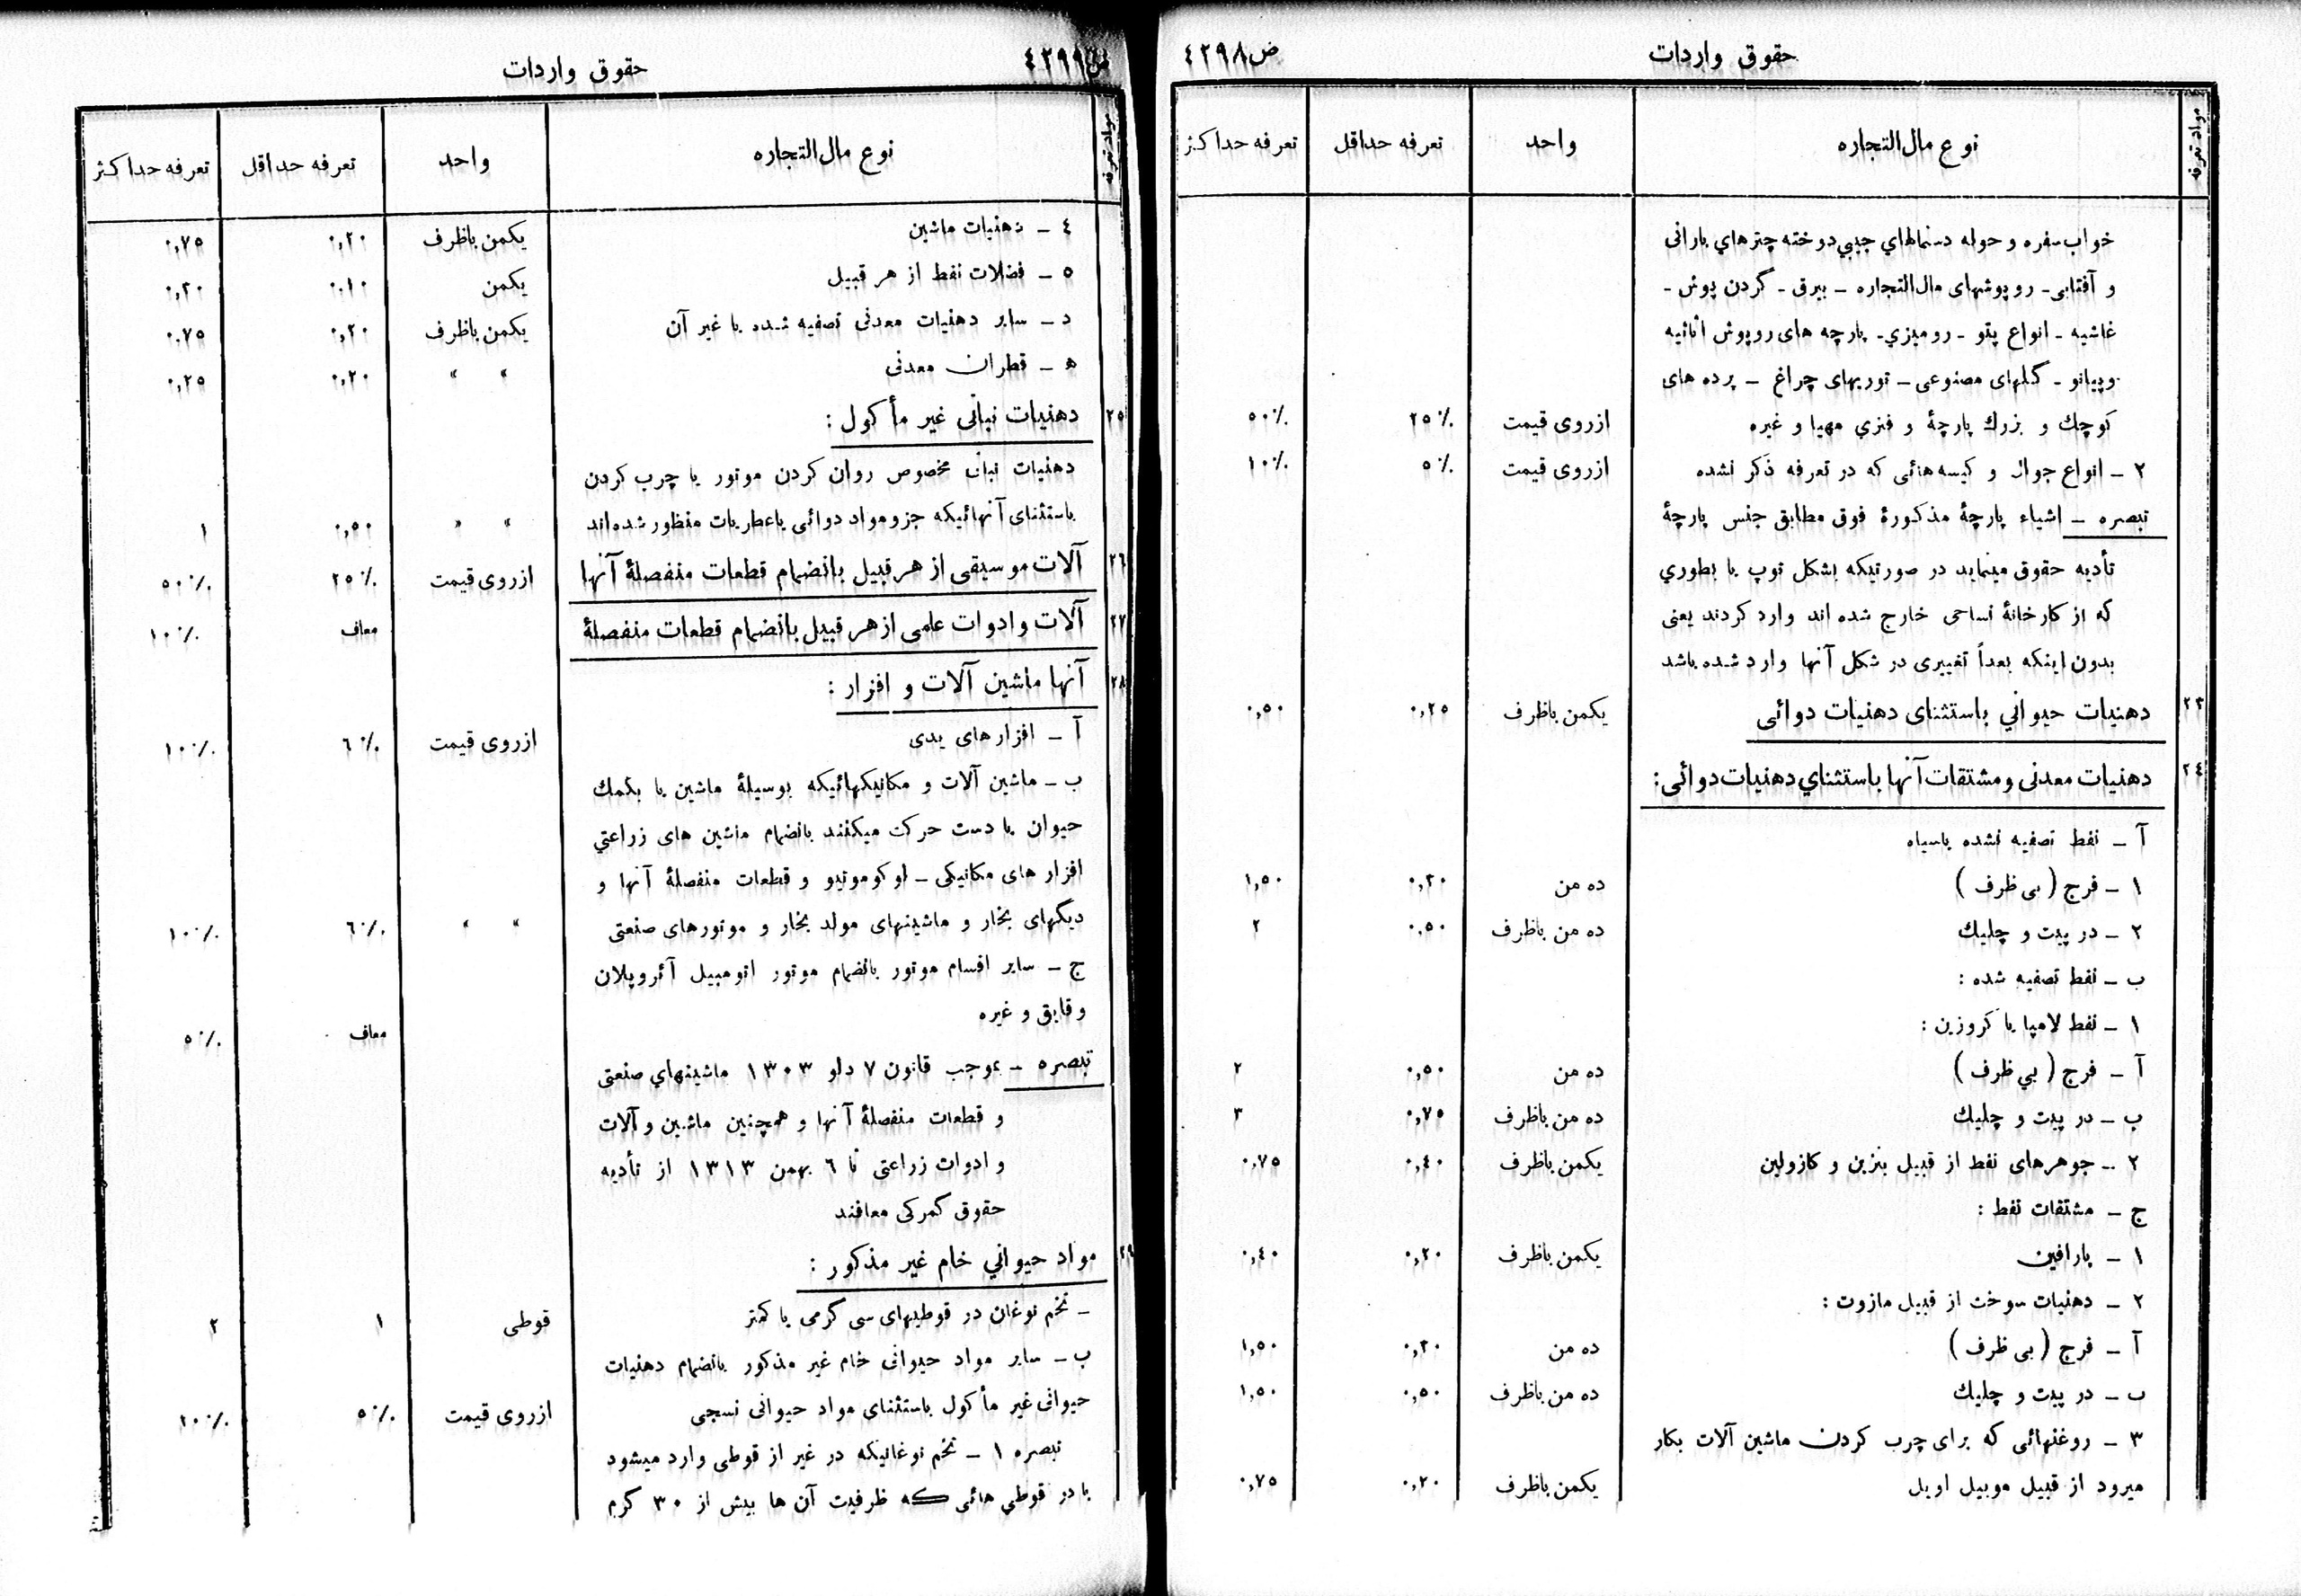 حقوق واردات
ض ٤٢٩٨
مواد تعرفه نوع مال‌التجاره واحد تعرفه حداقل تعرفه حداکثر
خواب سفره و حوله دستمالهاي جيبي دوخته چترهاي بارانی
و آفتابی ـ روپوشهای مال‌التجاره ـ بیرق ـ گردن پوش ـ
غاشیه ـ انواع پتو ـ رومیزي ـ پارچه های روپوش اثاثیه
وپیانو ـ گلهای مصنوعی ـ توریهای چراغ ـ پرده های
کوچك و بزرك پارچهٔ و فنري مهیا و غیره ازروی قیمت ٢٥٪ ٥٠٪
٢ ـ انواع جوال و کیسه هائی که در تعرفه ذکر نشده ازروی قیمت ٥٪ ١٠٪
تبصره ـ اشیاء پارچهٔ مذکورهٔ فوق مطابق جنس پارچهٔ
تأدیه حقوق مینماید در صورتیکه بشکل توپ یا بطوري
که از کارخانهٔ نساجی خارج شده اند وارد کردند یعنی
بدون اینکه بعداً تغییری در شکل آنها وارد شده باشد
٢٣ دهنیات حیواني باستثنای دهنیات دوائی یکمن باظرف ٠,٢٥ ٠,٥٠
٢٤ دهنیات معدنی و مشتقات آنها باستثناي دهنیات دوائی:
آ ـ نفط تصفیه نشده یاسیاه
١ ـ فرج ( بی ظرف ) ده من ٠,٣٠ ١,٥٠
٢ ـ در پیت و چلیك ده من باظرف ٠,٥٠ ٢
ب ـ نفط تصفیه شده :
١ ـ نفط لامپا یا کروزین :
آ ـ فرج ( بي ظرف ) ده من ٠,٥٠ ٢
ب ـ در پیت و چلیك ده من باظرف ٠,٧٥ ٣
٢ ـ جوهرهای نفط از قبیل بنزین و کازولین یکمن باظرف ٠,٤٠ ٠,٧٥
ج ـ مشتقات نفط :
١ ـ پارافین یکمن باظرف ٠,٢٠ ٠,٤٠
٢ ـ دهنیات سوخت از قبیل مازوت :
آ ـ فرج ( بی ظرف ) ده من ٠,٣٠ ١,٥٠
ب ـ در پیت و چلیك ده من باظرف ٠,٥٠ ١,٥٠
٣ ـ روغنهائی که برای چرب کردن ماشین آلات بکار
میرود از قبیل موبیل اویل یکمن باظرف ٠,٢٠ ٠,٧٥
حقوق واردات
ض ٤٢٩٩
مواد تعرفه نوع مال‌التجاره واحد تعرفه حداقل تعرفه حداکثر
٤ ـ دهنیات ماشین یکمن باظرف ٠,٢٠ ٠,٧٥
٥ ـ فضلات نفط از هر قبیل یکمن ٠.١٠ ٠,٢٠
د ـ سایر دهنیات معدنی تصفیه شده یا غیر آن یکمن باظرف ٠,٢٠ ٠.٧٥
ه ـ قطران معدنی « « ٠,٢٠ ٠,٢٥
٢٥ دهنیات نباتی غیر مأکول :
دهنیات نباتی مخصوص روان کردن موتور یا چرب کردن
باستثنای آنهائیکه جزو مواد دوائی یا عطریات منظور شده‌اند « « ٠,٥٠ ١
٢٦ آلات موسیقی از هر قبیل بانضمام قطعات منفصلهٔ آنها ازروی قیمت ٢٥٪ ٥٠٪
٢٧ آلات و ادوات علمی از هر قبیل بانضمام قطعات منفصلهٔ معاف ١٠٪
٢٨ آنها ماشین آلات و افزار :
آ ـ افزارهای یدی ازروی قیمت ٦٪ ١٠٪
ب ـ ماشین آلات و مکانیکهائیکه بوسیلهٔ ماشین یا بکمك
حیوان یا دست حرکت میکنند بانضمام ماشین های زراعتي
افزار های مکانیکی ـ لوکوموتیو و قطعات منفصلهٔ آنها و
دیگهای بخار و ماشینهای مولد بخار و موتورهای صنعتی « « ٦٪ ١٠٪
ج ـ سایر اقسام موتور بانضمام موتور اتومبیل آئروپلان
و قایق و غیره معاف ٥٪
تبصره ـ بموجب قانون ٧ دلو ١٣٠٣ ماشینهاي صنعتی
و قطعات منفصلهٔ آنها و همچنین ماشین و آلات
و ادوات زراعتی تا ٦ بهمن ١٣١٣ از تأدیه
حقوق گمرکی معافند
٢٩ مواد حیواني خام غیر مذکور :
ـ تخم نوغان در قوطیهای سی گرمی یا کمتر قوطی ١ ٢
ب ـ سایر مواد حیوانی خام غیر مذکور بانضمام دهنیات
حیوانی غیر مأکول باستثنای مواد حیوانی نسجی ازروی قیمت ٥٪ ١٠٪
تبصره ١ ـ تخم نوغانیکه در غیر از قوطی وارد میشود
یا در قوطي هائی که ظرفیت آن ها بیش از ٣٠ گرم